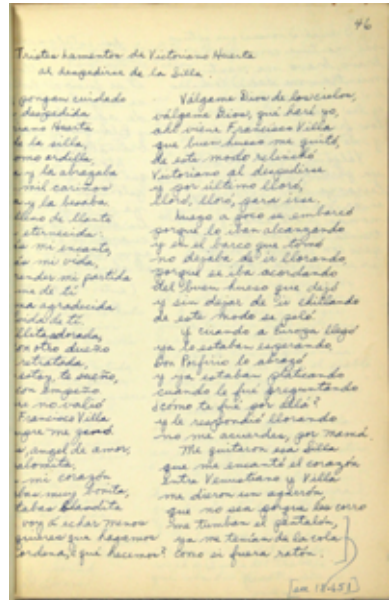 46
Tristes lamentos de Victoriano Huerta
al despedirse de la Silla.
pongan cuidado
despedida
Huerta
de la silla,
como ardilla,
a y la abrazaba
mil cariños
a y la besaba
lleno de llanto
eternecida:
mi encanto,
mi vida,
mi partida
me de ti
agradecida
vida de ti.
adorada,
otro dueño
retratada,
te sueño,
con empeño
no valió
Francisco Villa
me
angel de amor,
palomita,
mi corazón
muy bonita,
blandita
voy á echar menos
que hagamos
¿qué hacemos?
Válgame Dios de los cielos,
válgame Dios, qué haré yo,
ahí viene Francisco Villa
que buen hueso me quitó,
de este modo relinchó
Victoriano al despedirse
y por último lloró,
lloró, lloró, para irse.
Luego a poco se embarcó
porque lo iban alcanzando
y en el barco que tomó
no dejaba de ir llorando,
porque se iba acordando
del buen hueso que dejó
y sin dejar de ir chillando
de este modo se peló
Y cuando a Europa llegó
ya lo estaban esperando.
Don Porfirio lo abrazó
y ya estaban platicando
cuando le fué preguntando
¿cómo te fué por allá?
y le respondió llorando
no me acuerdes, por mamá.
Me quitaron esa Silla
que me encantó el corazón
Entre Venustiano y Villa
me dieron un agarrón
que no sea porque les corro
me tumban el pantalón,
ya me tenían de la cola
como si fuera ratón.